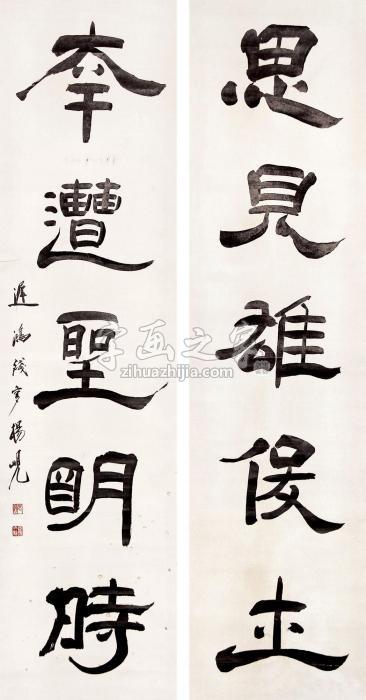 思見雄俊士
幸遭聖明時
遲鴻殘叟楊峴
字画之家
zihuazhijia.com